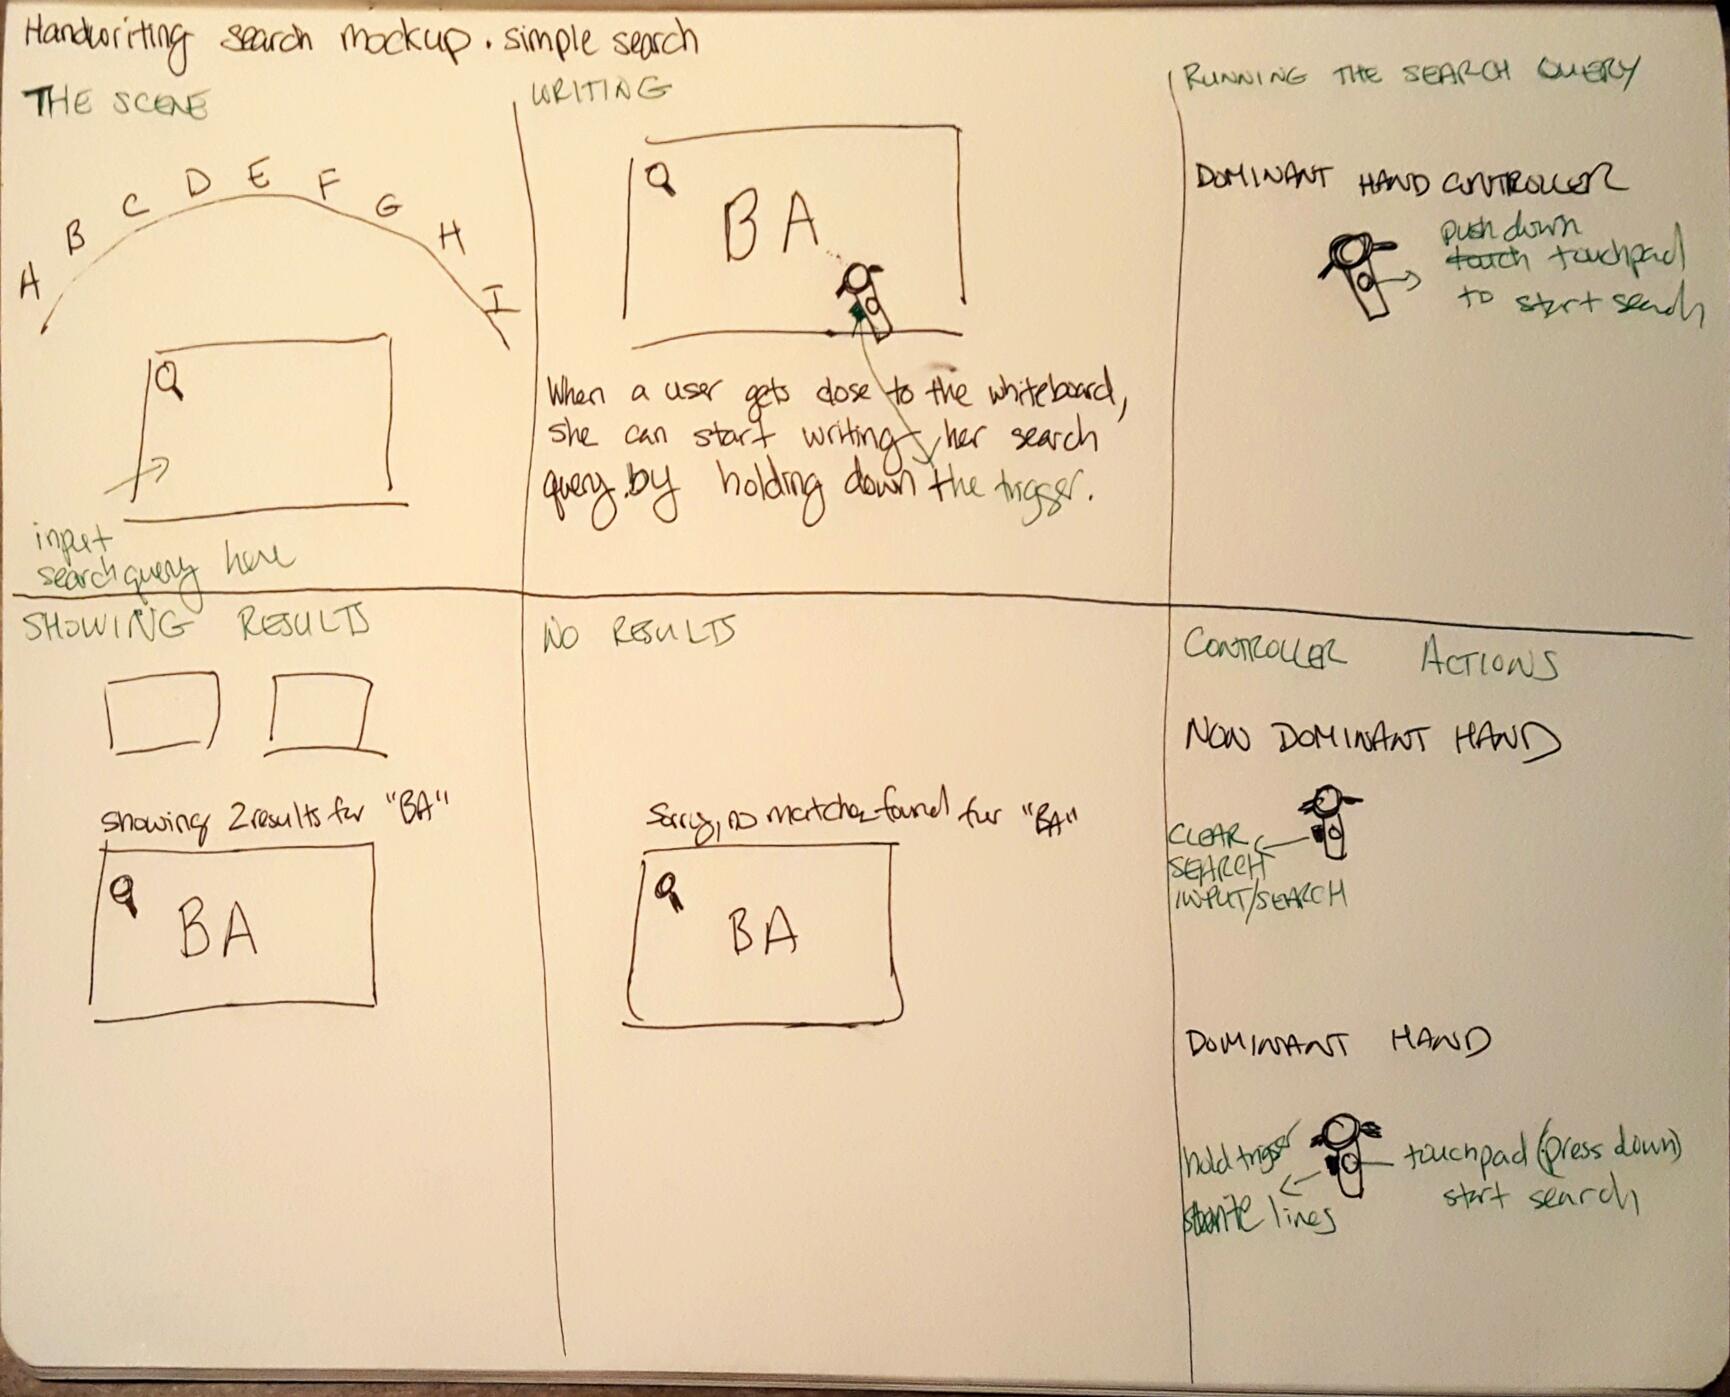 Handwriting search mockup. simple search
THE SCENE
A B C D E F G H I
input
search query here
WRITING
BA
When a user gets close to the whiteboard,
she can start writing her search
query by holding down the trigger.
RUNNING THE SEARCH QUERY
DOMINANT HAND CONTROLLER
push down
touch touchpad
to start search
SHOWING RESULTS
showing 2 results for "BA"
BA
NO RESULTS
Sorry, no matches found for "BA"
BA
CONTROLLER ACTIONS
NON DOMINANT HAND
CLEAR
SEARCH
INPUT/SEARCH
DOMINANT HAND
hold trigger
lines
touchpad (press down)
start search